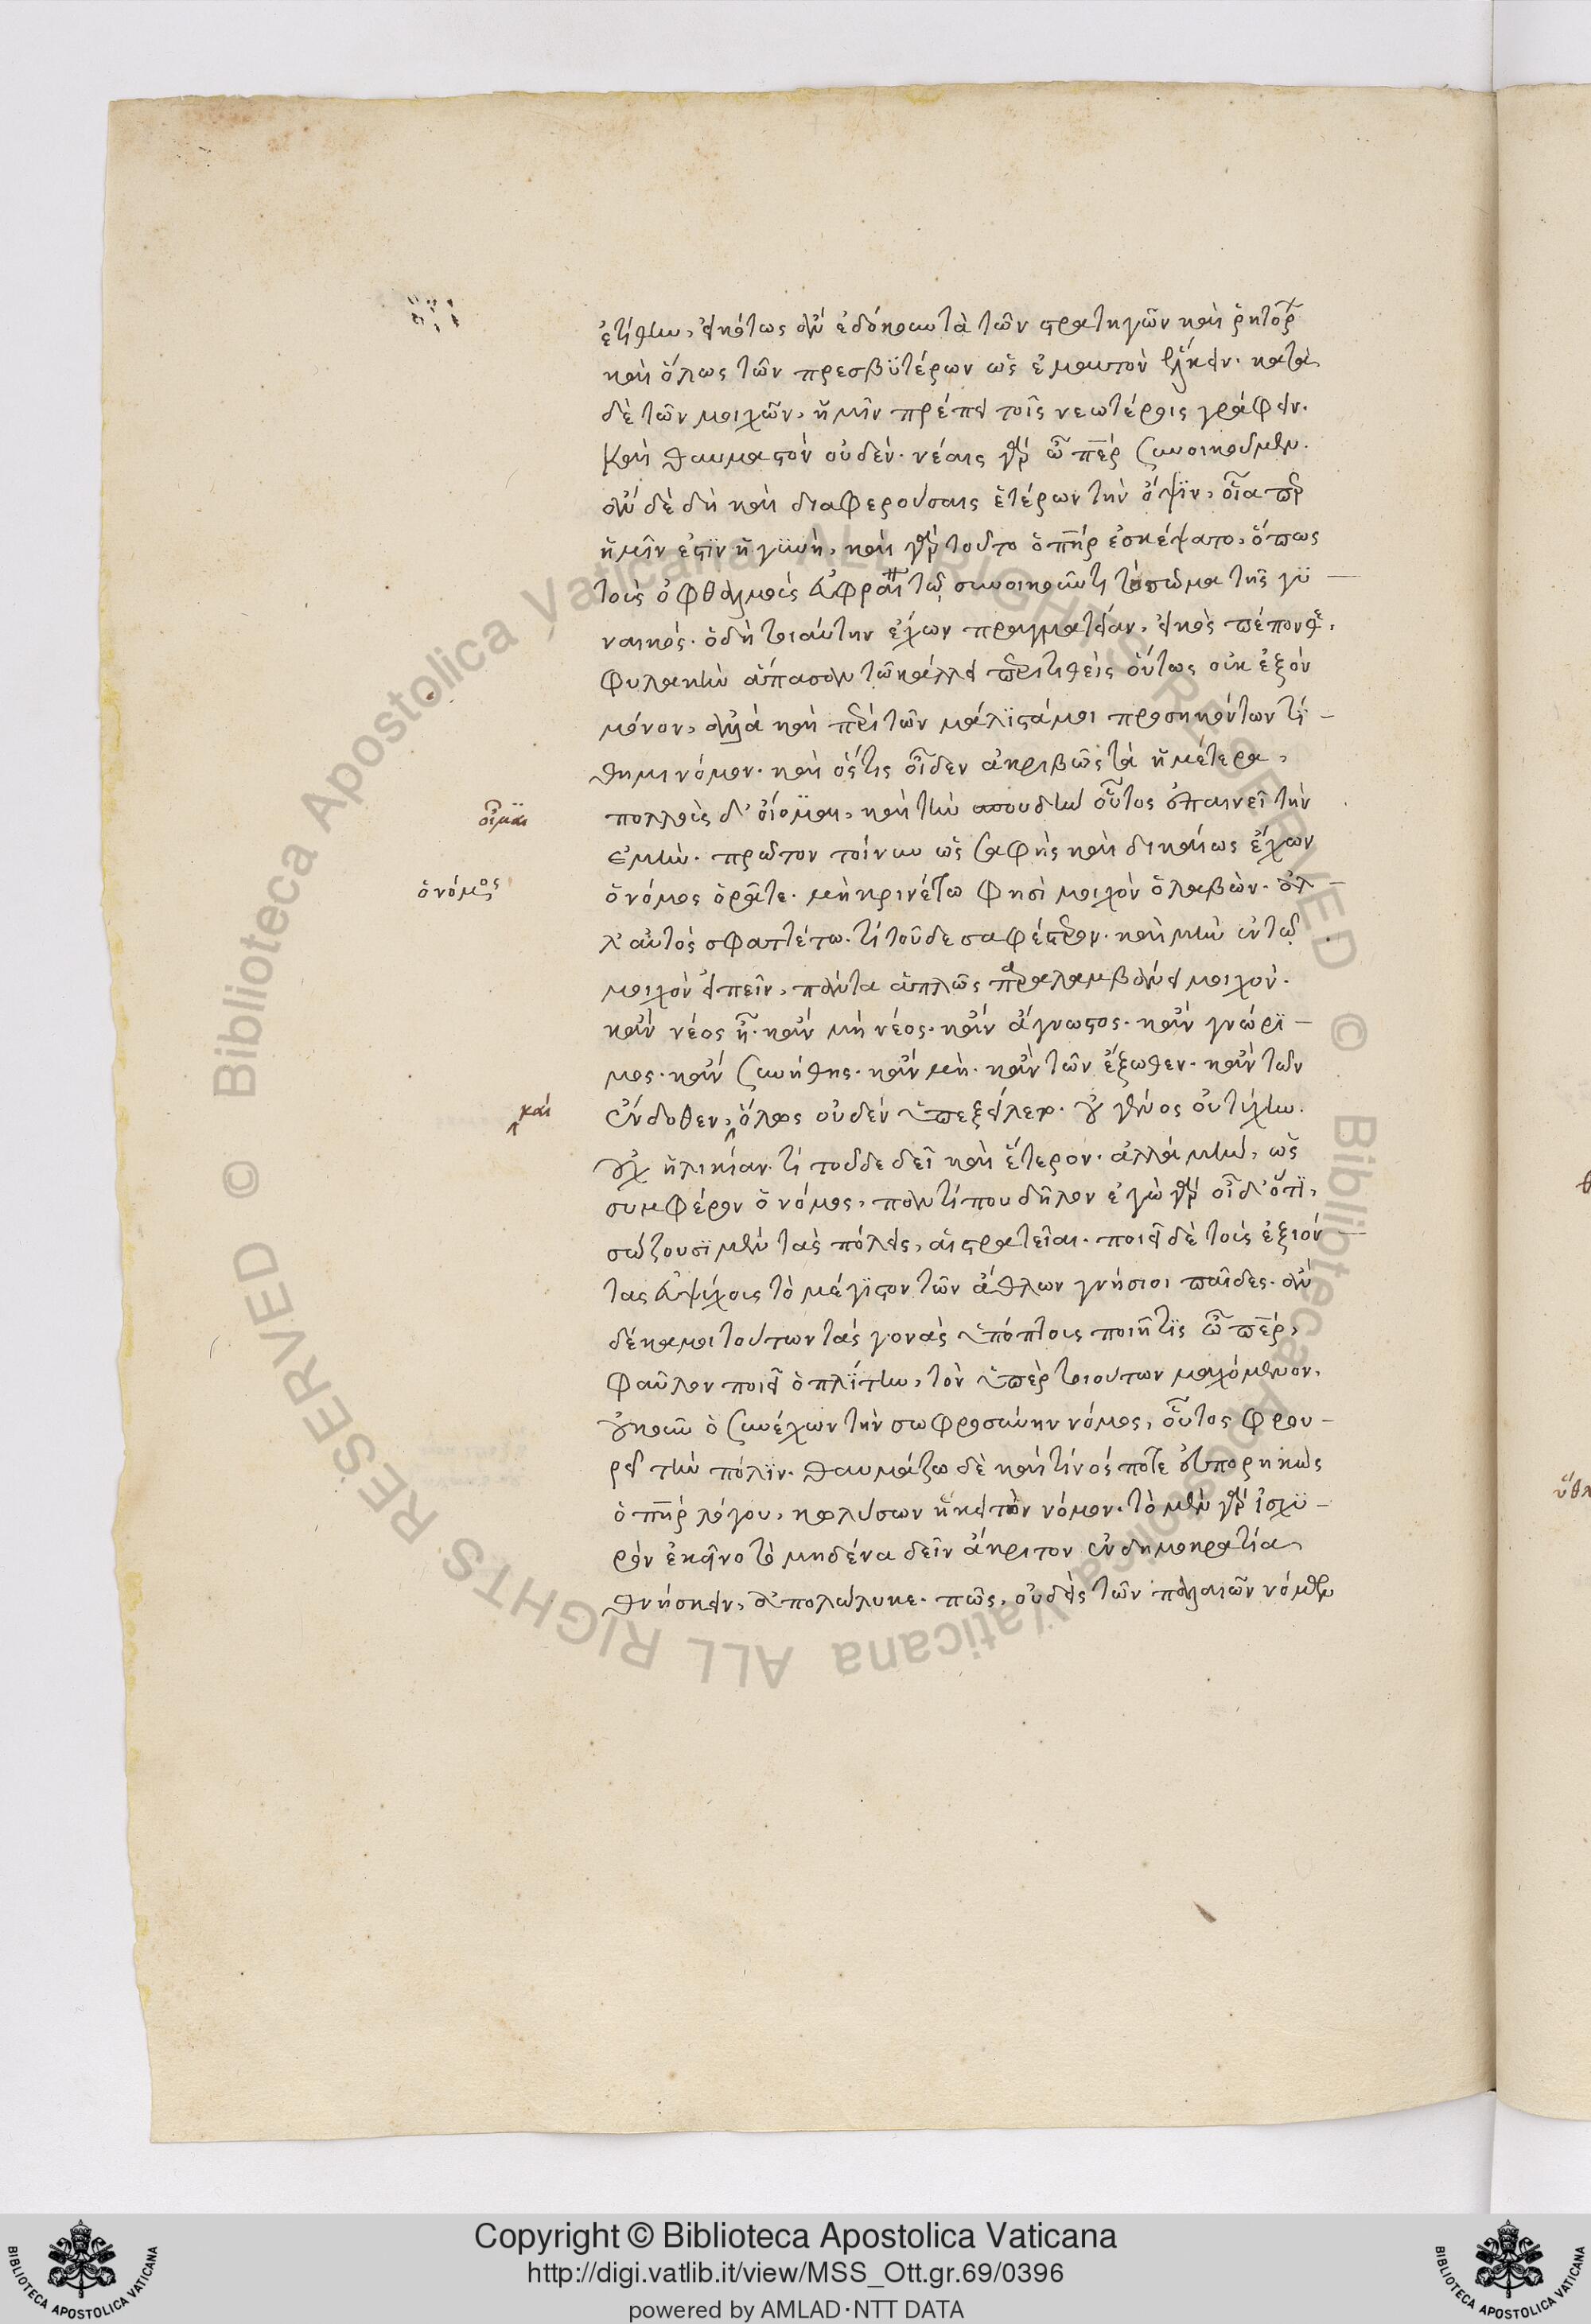 ἐτίθην, εἰκότως ἂν ἐδόκουν τὰ τῶν στρατηγῶν καὶ ῥητόρ
καὶ ὅλως τῶν πρεσβϋτέρων ὡς ἐμαυτὸν ἕλκειν. κατὰ
δὲ τῶν μοιχῶν, ἡμῖν πρέπει τοῖς νεωτέροις γράφειν.
καὶ θαυμαστὸν οὐδέν. νέαις γὰρ ὦ ἄνδρες συνοικοῦμεν.
ἂν δὲ δὴ καὶ διαφερούσαις ἑτέρων τὴν ὄψϊν, οἵα περ
ἡμῖν ἐστϊν ἡ γϋνὴ, καὶ γὰρ τοῦτο ὁ πατὴρ ἐσκέψατο, ὅπως
τοὺς ὀφθαλμοὺς εὐφραίνῃ τῷ συνοικοῦντι τὸ σῶμα τῆς γϋ
ναικός. ὁ δὴ τοιαύτην ἔχων πραγματείαν, εἰκὸς πέπονθε,
φυλακὴν ἅπασαν τῷ κάλλει περιτιθεὶς οὕτως οὐκ ἐξὸν
μόνον, ἀλλὰ καὶ περὶ τῶν μάλϊστά μοι προσηκόντων τί
θημι νόμον. καὶ ὅστις οἶδεν ἀκριβῶς τὰ ἡμέτερα,
πολλοὺς δ' οἴομαι, καὶ τὴν σπουδὴν οὗτος ἐπαινεῖ τὴν
οἶμαι
ἐμήν. πρῶτον τοίνυν ὡς σαφὴς καὶ δικαίως ἔχων
ὁ νόμος ὁρᾶτε. μὴ κρινέτω φησὶ μοιχὸν ὁ λαβὼν. ἀλ
ὁ νόμος
λ' αὐτὸς σφαττέτω. τί τοῦδε σαφέστερον. καὶ μὴν ἐν τῷ
μοιχὸν εἰπεῖν, πάντα ἁπλῶς παραλαμβάνει μοιχόν.
κἂν νέος ᾖ. κἂν μὴ νέος. κἂν ἄγνωστος. κἂν γνώρϊ
μος. κἂν συνήθης. κἂν μὴ. κἂν τῶν ἔξωθεν. κἂν τῶν
ἔνδοθεν, ὅλως οὐδὲν ὑπεξεῖλεν. οὐ γένος οὐ τύχην.
καὶ
οὐχ ἡλικίαν. τί τοῦδε δεῖ καὶ ἕτερον. ἀλλὰ μὴν, ὡς
συμφέρων ὁ νόμος, παντί που δῆλον ἐγὼ γὰρ οἶδ' ὅτϊ,
σώζουσϊ μὲν τὰς πόλεις, αἱ στρατεῖαι. ποιεῖ δὲ τοὺς ἐξιόν
τας εὐψύχους τὸ μέγϊστον τῶν ἄθλων γνήσιοι παῖδες. ἂν
δέ κἀμοι τούτων τὰς γονὰς ὑπόπτους ποιῇ τϊς ὦ ἄνδρες,
φαῦλον ποιεῖ ὁπλίτην, τὸν ὑπὲρ τοιούτων μαχόμενον.
οὐκοῦν ὁ συνέχων τὴν σωφροσύνην νόμος, οὗτος φρου
ρεῖ τὴν πόλϊν. θαυμάζω δὲ καὶ τίνός ποτε εὐπορηκὼς
ὁ πατὴρ λόγου, κωλύσων ἥκει τὸν νόμον. τὸ μὲν γὰρ ἰσχϋ
ρὸν ἐκεῖνο τὸ μηδένα δεῖν ἄκριτον ἐν δημοκρατίᾳ
θνήσκειν, ἀπολώλυκε. πῶς, οὐδεὶς τῶν παλαιῶν νόμων